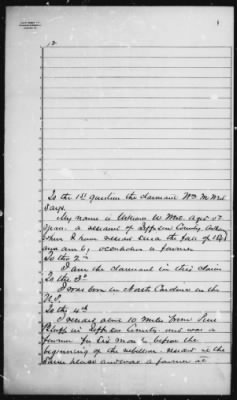 12
1
To the 1st question the claimant Wm M
Says
My name is William W Aged 57
years a resident of Jefferson County
where I have resided since the fall of
and am by occupation a farmer
To the 2nd
I am the claimant in this claim
To the 3d
I was born in North Carolina in the
U.S.
To the 4th
I resided about 10 miles from Pine
Bluff in Jefferson County and was a
farmer for six months before the
beginning of the rebellion. resided at the
same place and was a farmer at